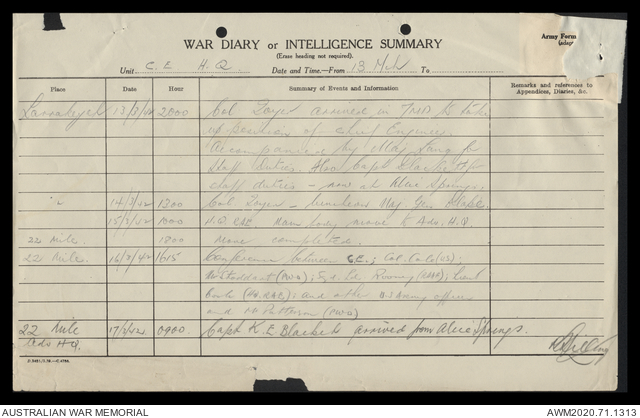 Army Form
WAR DIARY or INTELLIGENCE SUMMARY
(Erase heading not required).
Unit C.E H.Q. Date and Time—From 13 Mch To
Place Date Hour Summary of Events and Information Remarks and references to Appendices, Diaries, &c.
Larrakeyah 13/3/42 2000 Col arrived in to take
up position of Chief Engineer.
Accompanied by Maj for
Staff Duties. Also Capt Blackett for
staff duties — now at Alice Springs.
14/3/42 1300 Col Maj Gen Blake.
15/3/42 1000 H.Q. Main body move to Adv. H.Q.
22 Mile. 1800 Move completed.
22 Mile. 16/3/42 1615 Conference between C.E.; Col. (US);
Mr Stoddart (PWD); (RAAF); Lieut
and other U.S Army officers
and Mr (PWD)
22 Mile 17/3/42 0900 Capt K. E Blackets arrived from Alice Springs.
Adv H.Q.
AUSTRALIAN WAR MEMORIAL AWM2020.71.1313